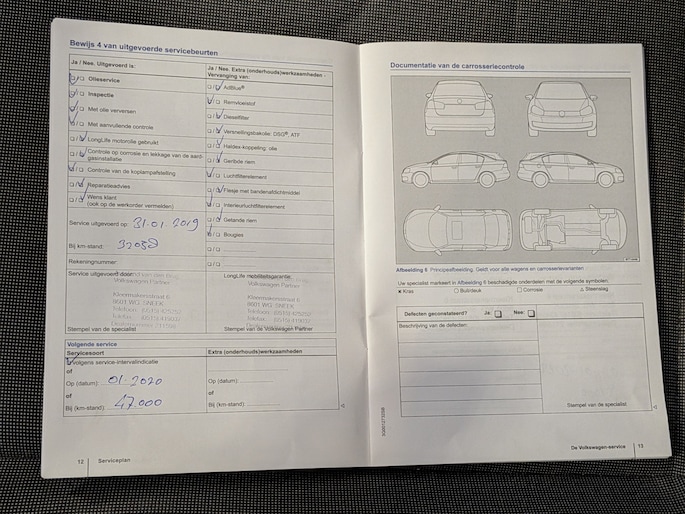 Bewijs 4 van uitgevoerde servicebeurten
Ja / Nee. Uitgevoerd is:
Olieservice
Inspectie
Met olie verversen
Met aanvullende controle
LongLife motorolie gebruikt
Controle op corrosie en lekkage van de aard-
gasinstallatie
Controle van de koplampafstelling
Reparatieadvies
Wens klant
(ook op de werkorder vermelden)
Service uitgevoerd op: 31-01-2019
Bij km-stand: 32038
Rekeningnummer:
Service uitgevoerd door:
Volkswagen Partner
Kleermakersstraat 6
8601 WG SNEEK
Stempel van de specialist
Ja / Nee. Extra (onderhouds)werkzaamheden -
Vervanging van:
AdBlue®
Remvloeistof
Dieselfilter
Versnellingsbakolie: DSG®, ATF
Haldex-koppeling: olie
Geribde riem
Luchtfilterelement
Flesje met bandenafdichtmiddel
Interieurluchtfilterelement
Getande riem
Bougies
LongLife mobiliteitsgarantie:
Volkswagen Partner
Kleermakersstraat 6
8601 WG SNEEK
Stempel van de Volkswagen Partner
Volgende service
Servicesoort
Extra (onderhouds)werkzaamheden
Volgens service-intervalindicatie
of
Op (datum): 01-2020
Op (datum):
of
of
Bij (km-stand): 47.000
Bij (km-stand):
12 Serviceplan
Documentatie van de carrosseriecontrole
Afbeelding 6 Principeafbeelding. Geldt voor alle wagens en carrosserievarianten
Uw specialist markeert in Afbeelding 6 beschadigde onderdelen met de volgende symbolen:
Kras
Buil/deuk
Corrosie
Steenslag
Defecten geconstateerd? Ja: Nee:
Beschrijving van de defecten:
Stempel van de specialist
De Volkswagen-service 13